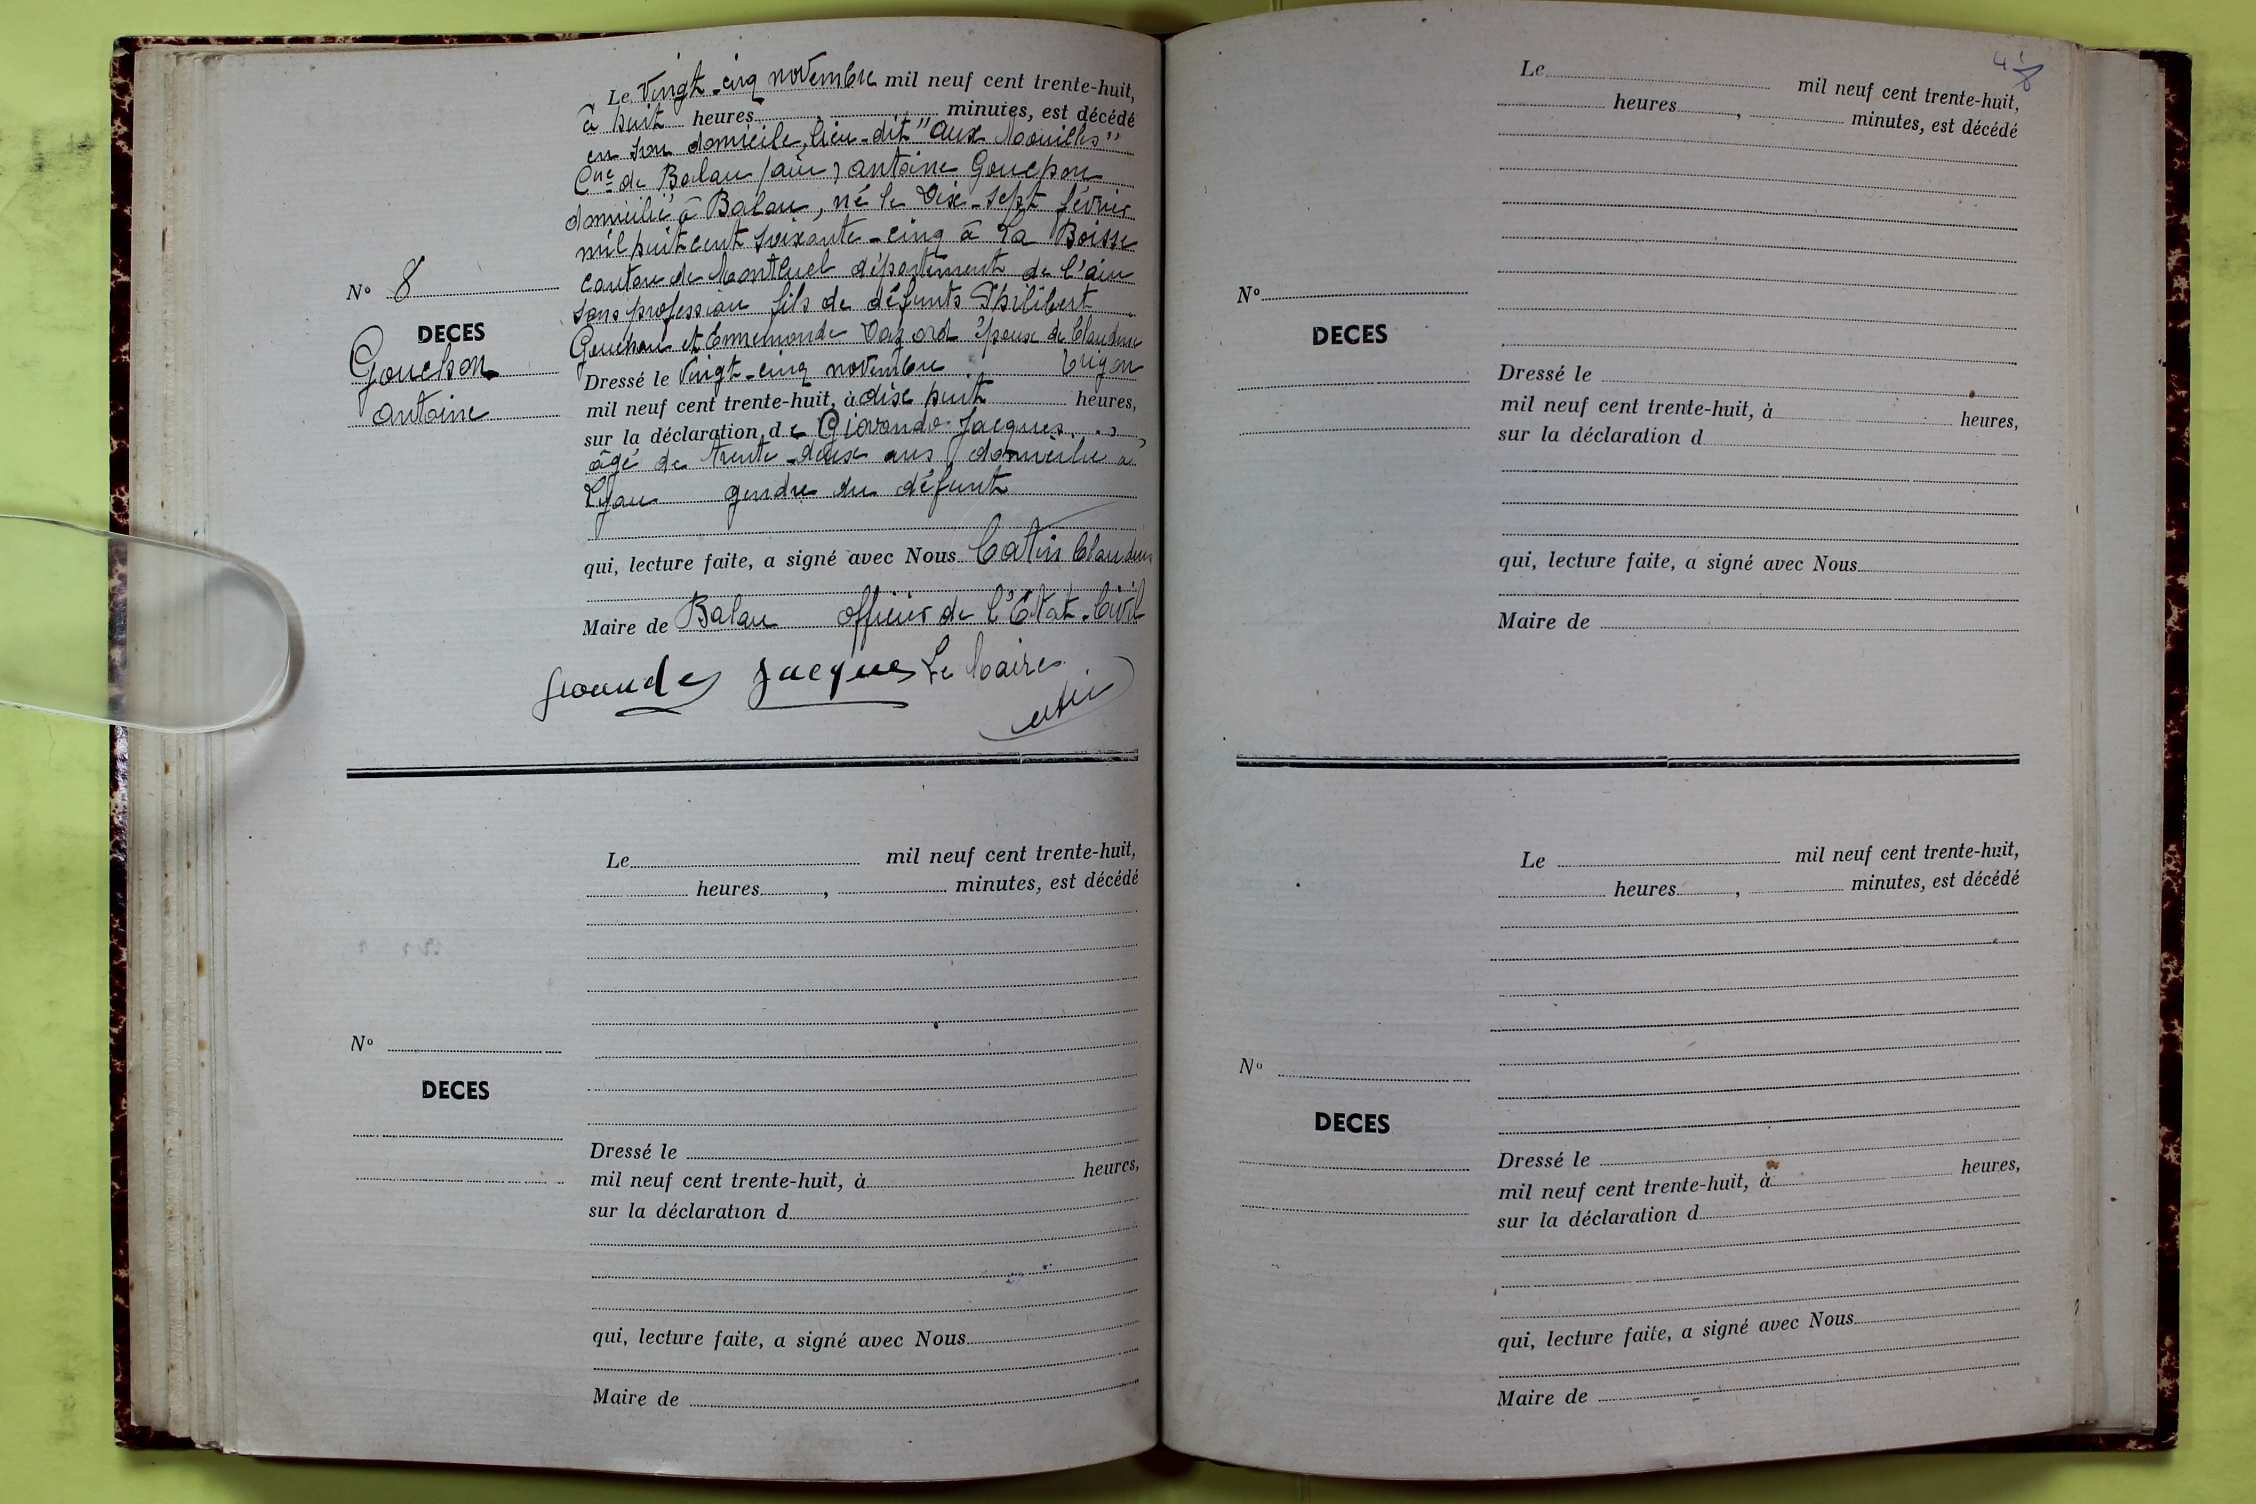 Le Vingt-cinq novembre mil neuf cent trente-huit,
à huit heures minutes, est décédé
en son domicile, lieu-dit "aux Mouilles"
Cne de Balan (ain) antoine Gouchon
domicilié à Balan, né le Dix-sept février
mil huit cent soixante-cinq à La Boisse
canton de Montluel département de l'ain
sans profession fils de défunts Philibert
Gouchon et Ennemonde époux de Claudine
Trigon
N° 8
DECES
Gouchon
antoine
Dressé le Vingt-cinq novembre
mil neuf cent trente-huit, à dix huit heures,
sur la déclaration de Jacques
âgé de trente-deux ans domicilié à
Lyon gendre du défunt
qui, lecture faite, a signé avec Nous Catin Claudius
Maire de Balan officier de l'Etat-Civil
Jacques Le Maire
Catin
Le mil neuf cent trente-huit,
heures , minutes, est décédé
N°
DECES
Dressé le
mil neuf cent trente-huit, à heures,
sur la déclaration d
qui, lecture faite, a signé avec Nous
Maire de
48
Le mil neuf cent trente-huit,
heures , minutes, est décédé
N°
DECES
Dressé le
mil neuf cent trente-huit, à heures,
sur la déclaration d
qui, lecture faite, a signé avec Nous
Maire de
Le mil neuf cent trente-huit,
heures , minutes, est décédé
N°
DECES
Dressé le
mil neuf cent trente-huit, à heures,
sur la déclaration d
qui, lecture faite, a signé avec Nous
Maire de